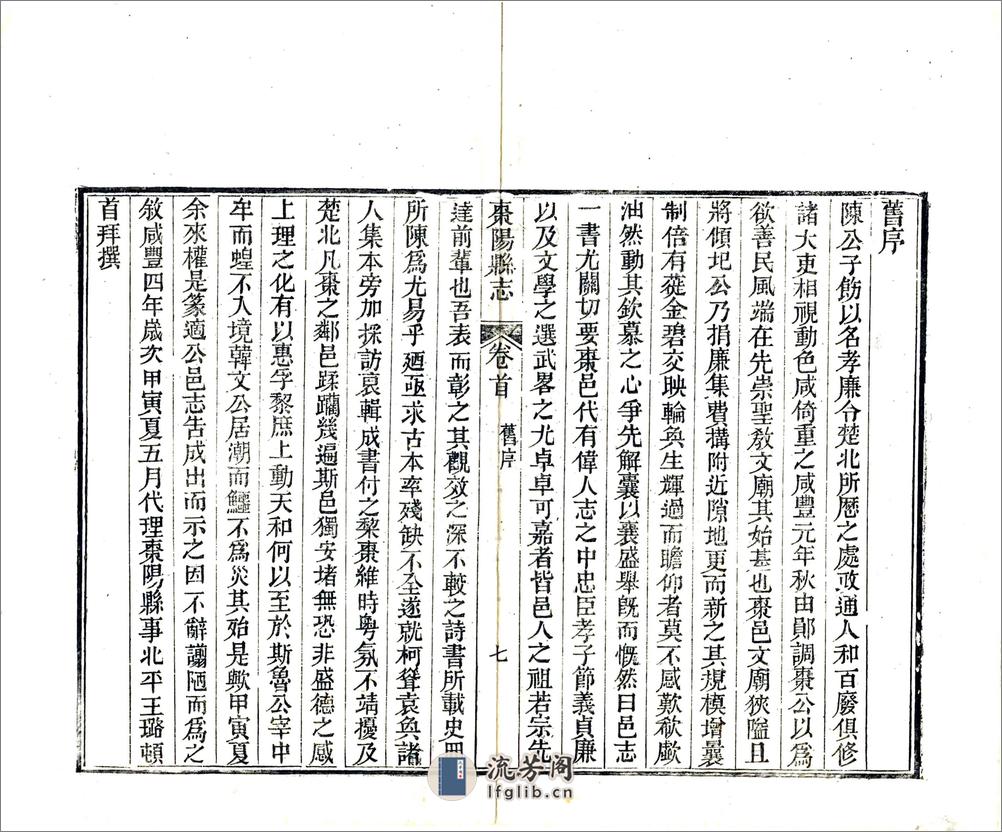 舊序
陳公子飭以名孝廉令楚北所歷之處政通人和百廢俱修
諸大吏相視動色咸倚重之咸豐元年秋由鄖調棗公以爲
欲善民風端在先崇聖敎文廟其始基也棗邑文廟狹隘且
將傾圮公乃捐廉集費搆附近隙地更而新之其規模增曩
制倍有蓰金碧交映輪奐生輝過而瞻仰者莫不感歎欷歔
油然動其欽慕之心爭先解囊以襄盛舉旣而慨然曰邑志
一書尤關切要棗邑代有偉人志之中忠臣孝子節義貞廉
以及文學之選武畧之尤卓卓可嘉者皆邑人之祖若宗先
棗陽縣志 卷首 舊序 七
達前輩也吾表而彰之其觀效之深不較之詩書所載史冊
所陳爲尤易乎廼亟求古本率殘缺不全遂就柯聳袁奐諸
人集本旁加採訪裒輯成書付之棃棗維時粵氛不靖擾及
楚北凡棗之鄰邑蹂躪幾遍斯邑獨安堵無恐非盛德之感
上理之化有以惠孚黎庶上動天和何以至於斯魯公宰中
牟而蝗不入境韓文公居潮而鱷不爲災其殆是歟甲寅夏
余來權是篆適公邑志告成出而示之因不辭譾陋而爲之
敘咸豐四年歲次甲寅夏五月代理棗陽縣事北平王璐頓
首拜撰
流芳阁
lfglib.cn